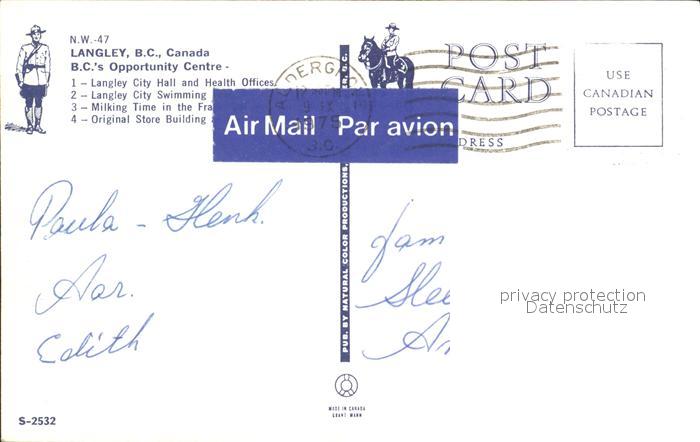 N.W.-47
LANGLEY, B.C., Canada
B.C.'s Opportunity Centre -
1 – Langley City Hall and Health Offices.
2 – Langley City Swimming
3 – Milking Time in the Fra
4 – Original Store Building
POST
CARD
USE
CANADIAN
POSTAGE
Air Mail Par avion
1975
B.C.
DRESS
Paula - Henk.
Aar.
Edith
fam
Slee
privacy protection
Datenschutz
PUB. BY NATURAL COLOR PRODUCTIONS
MADE IN CANADA
GRANT MANN
S-2532